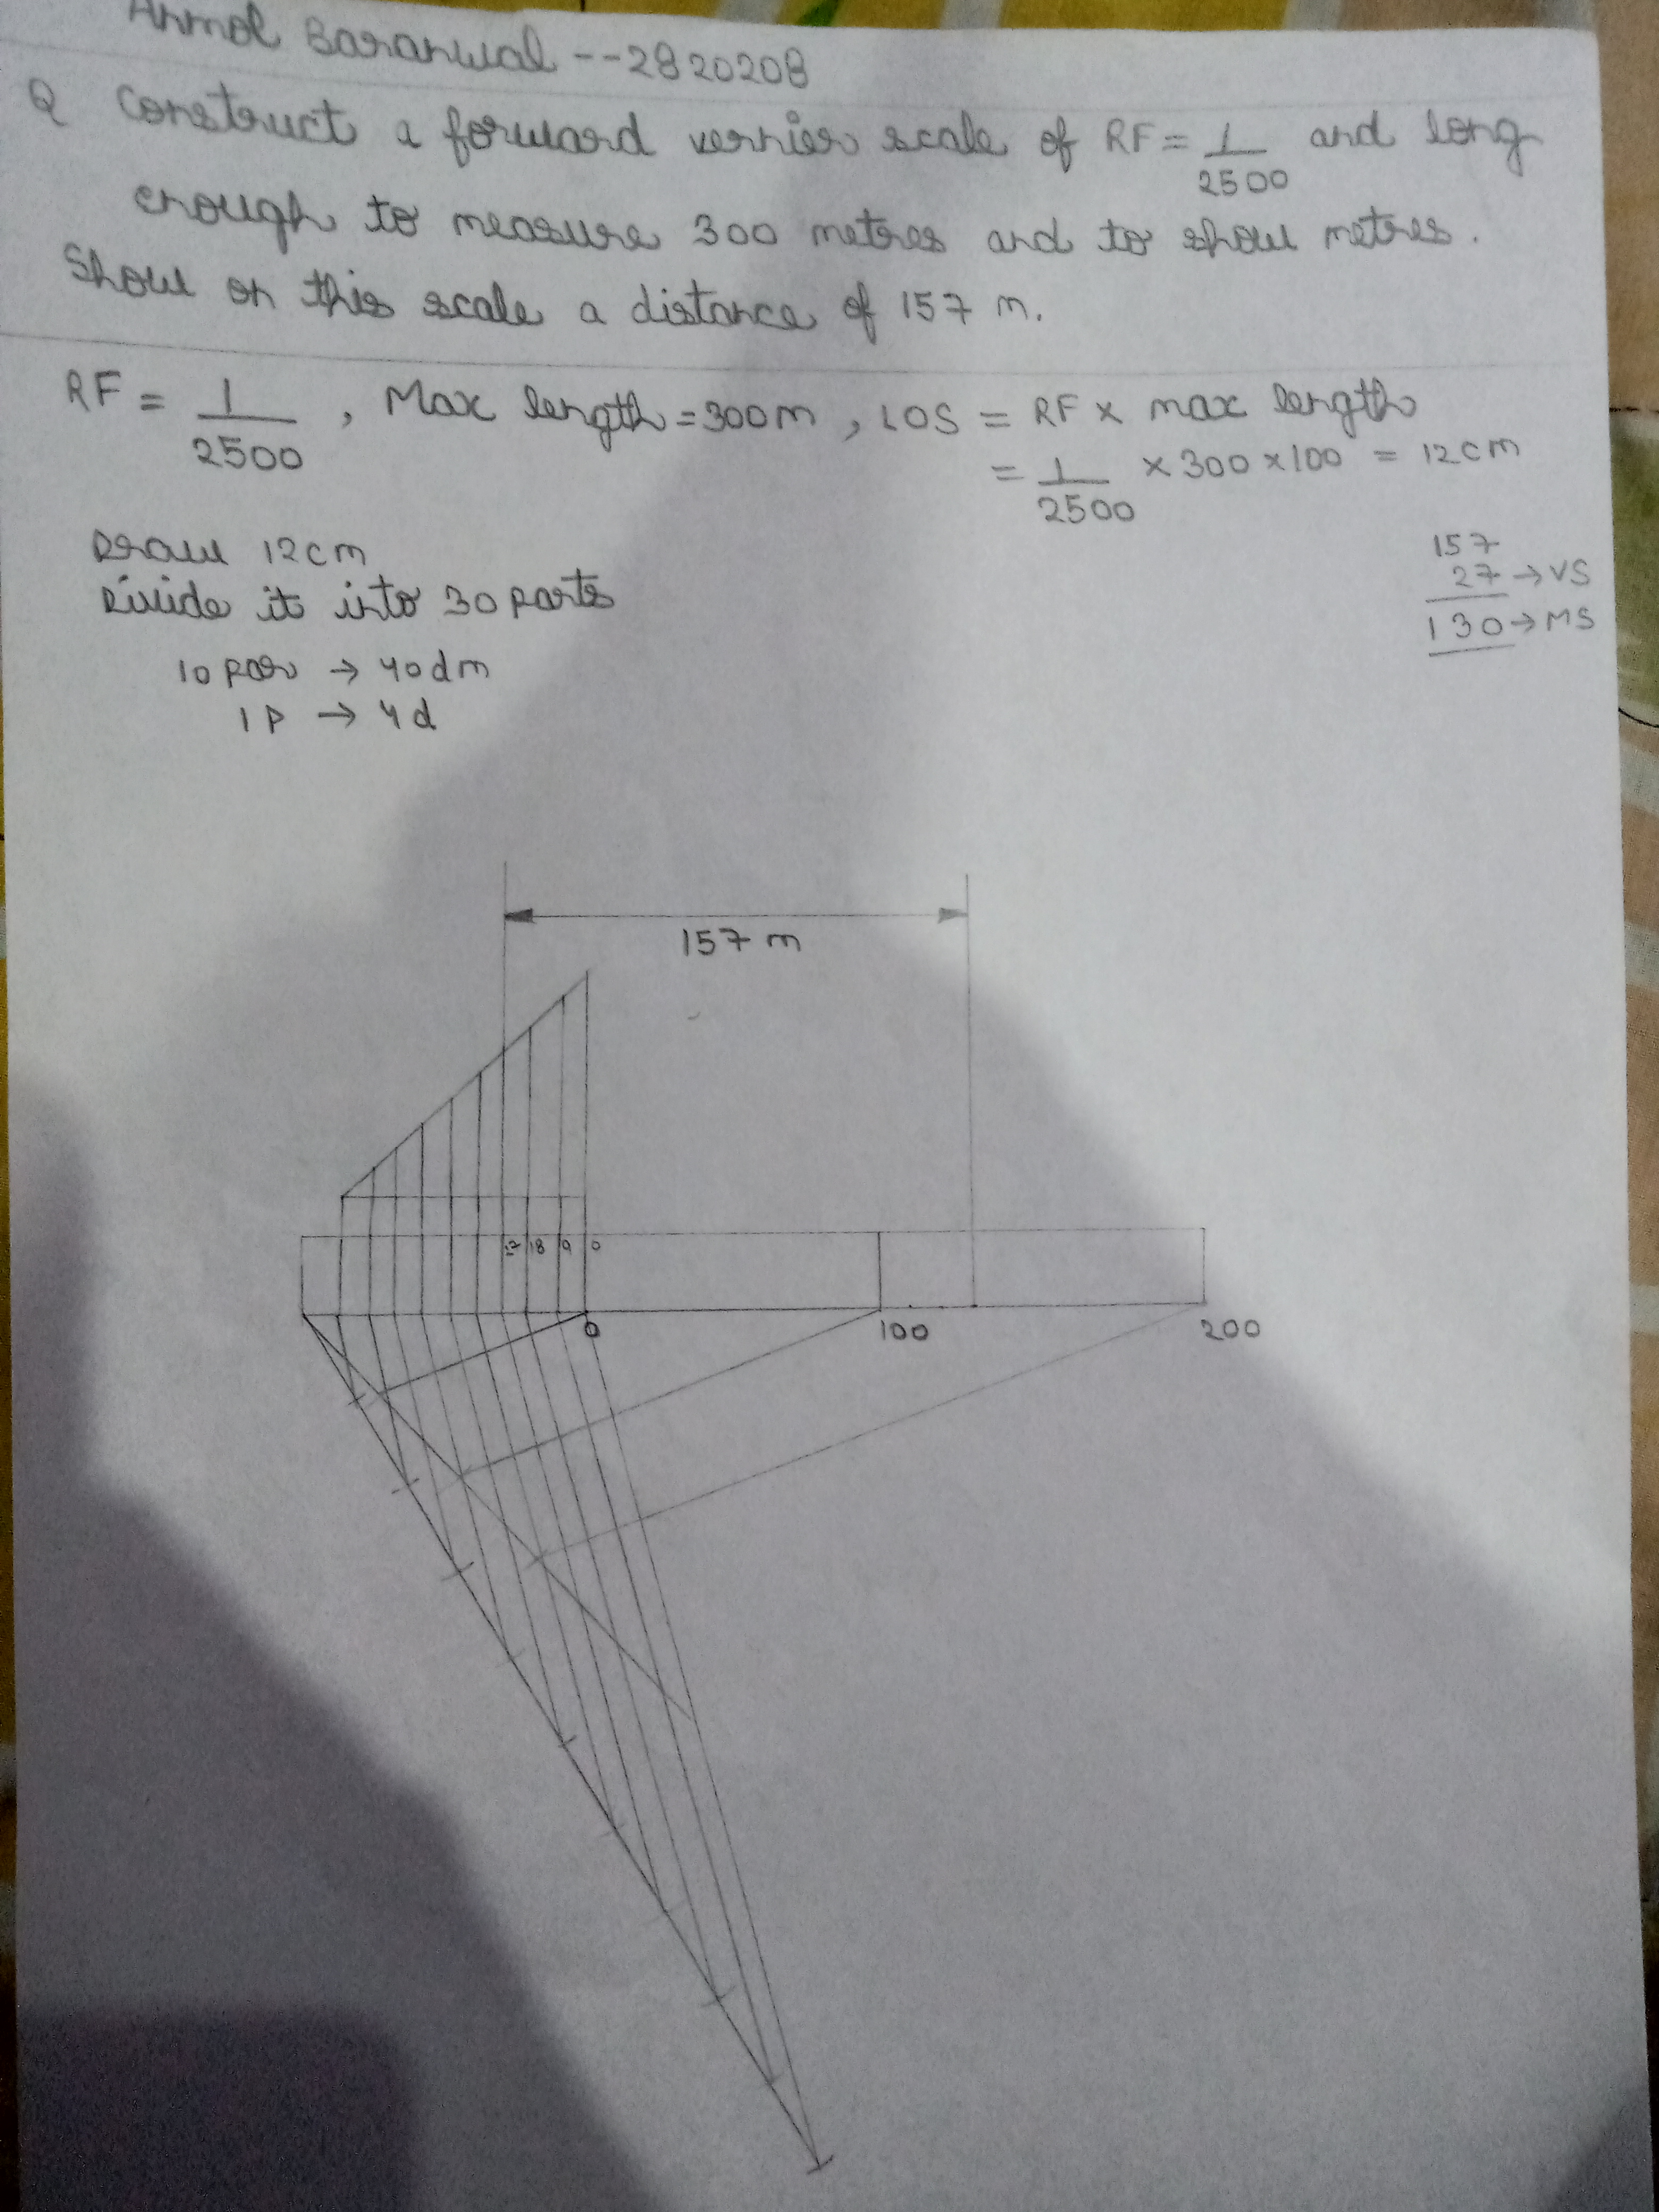 Anmol Baranwal --2820208
Q Construct a forward vernier scale of RF = 1/2500 and long
enough to measure 300 metres and to show metres.
Show on this scale a distance of 157 m.
RF = 1/2500 , Max length = 300m , LOS = RF × max length
= 1/2500 × 300 × 100 = 12cm
Draw 12cm
Divide it into 30 parts
10 par → 40dm
1P → 4d
157
27 → VS
130 → MS
157 m
27 18 9 0
0 100 200